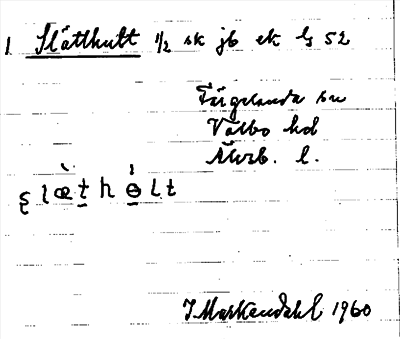 1 Slätthult 1/2 sk jb ek G 52
Färgelanda sn
Valbo hd
Älvsb. l.
ʂlæ̀thɵ̀lt
J Markendahl 1960